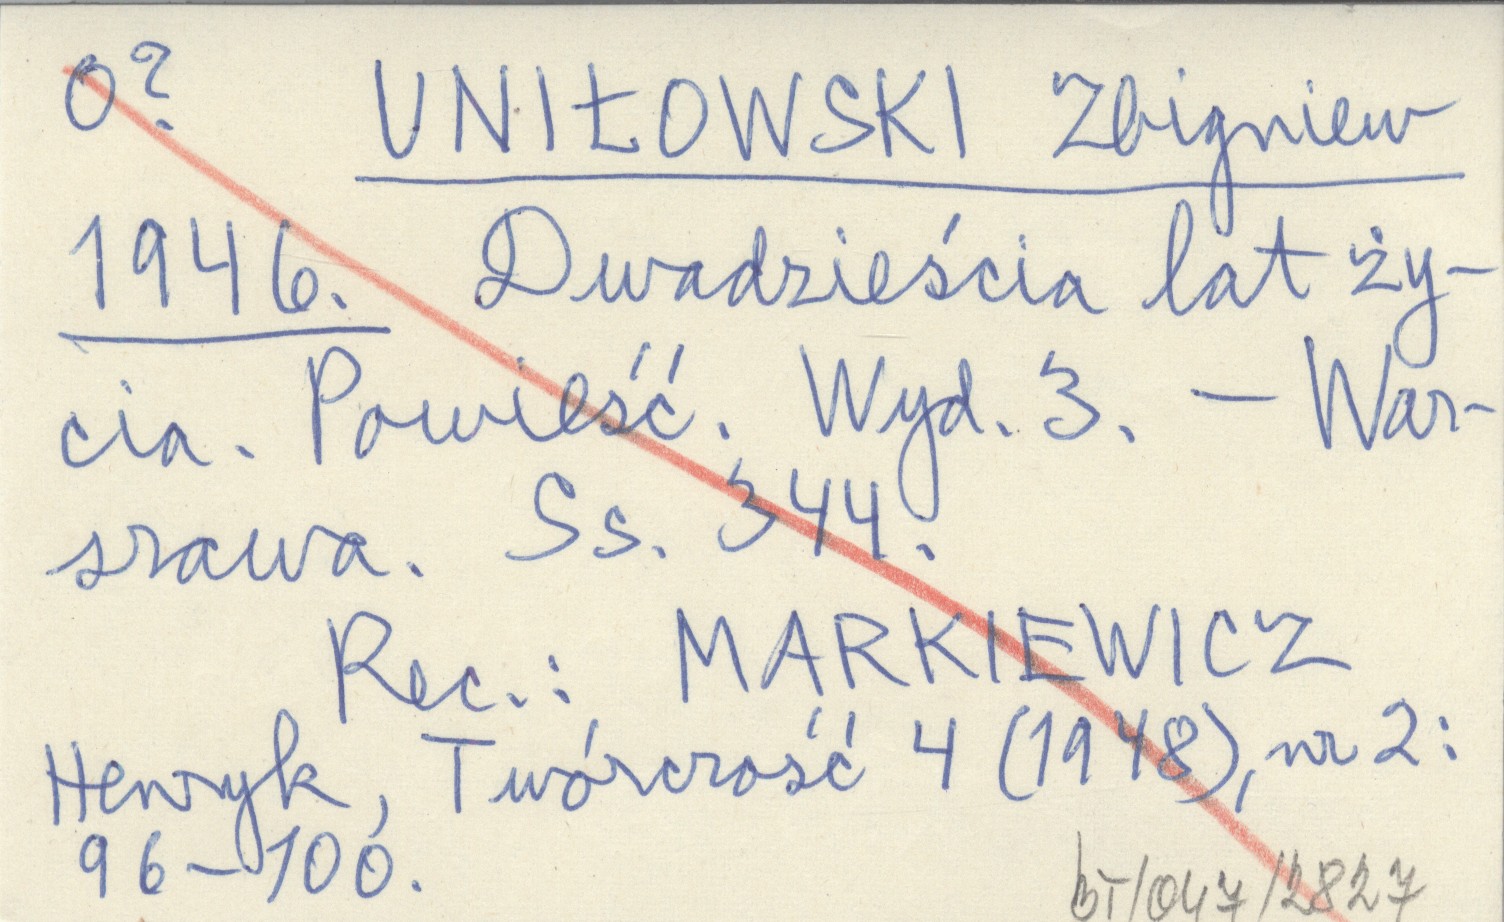 O? UNIŁOWSKI Zbigniew
1946. Dwadzieścia lat ży-
cia. Powieść. Wyd. 3. – War-
szawa. Ss. 344.
Rec.: MARKIEWICZ
Henryk, Twórczość 4 (1948), nr 2:
96–100.
bI/047/2827